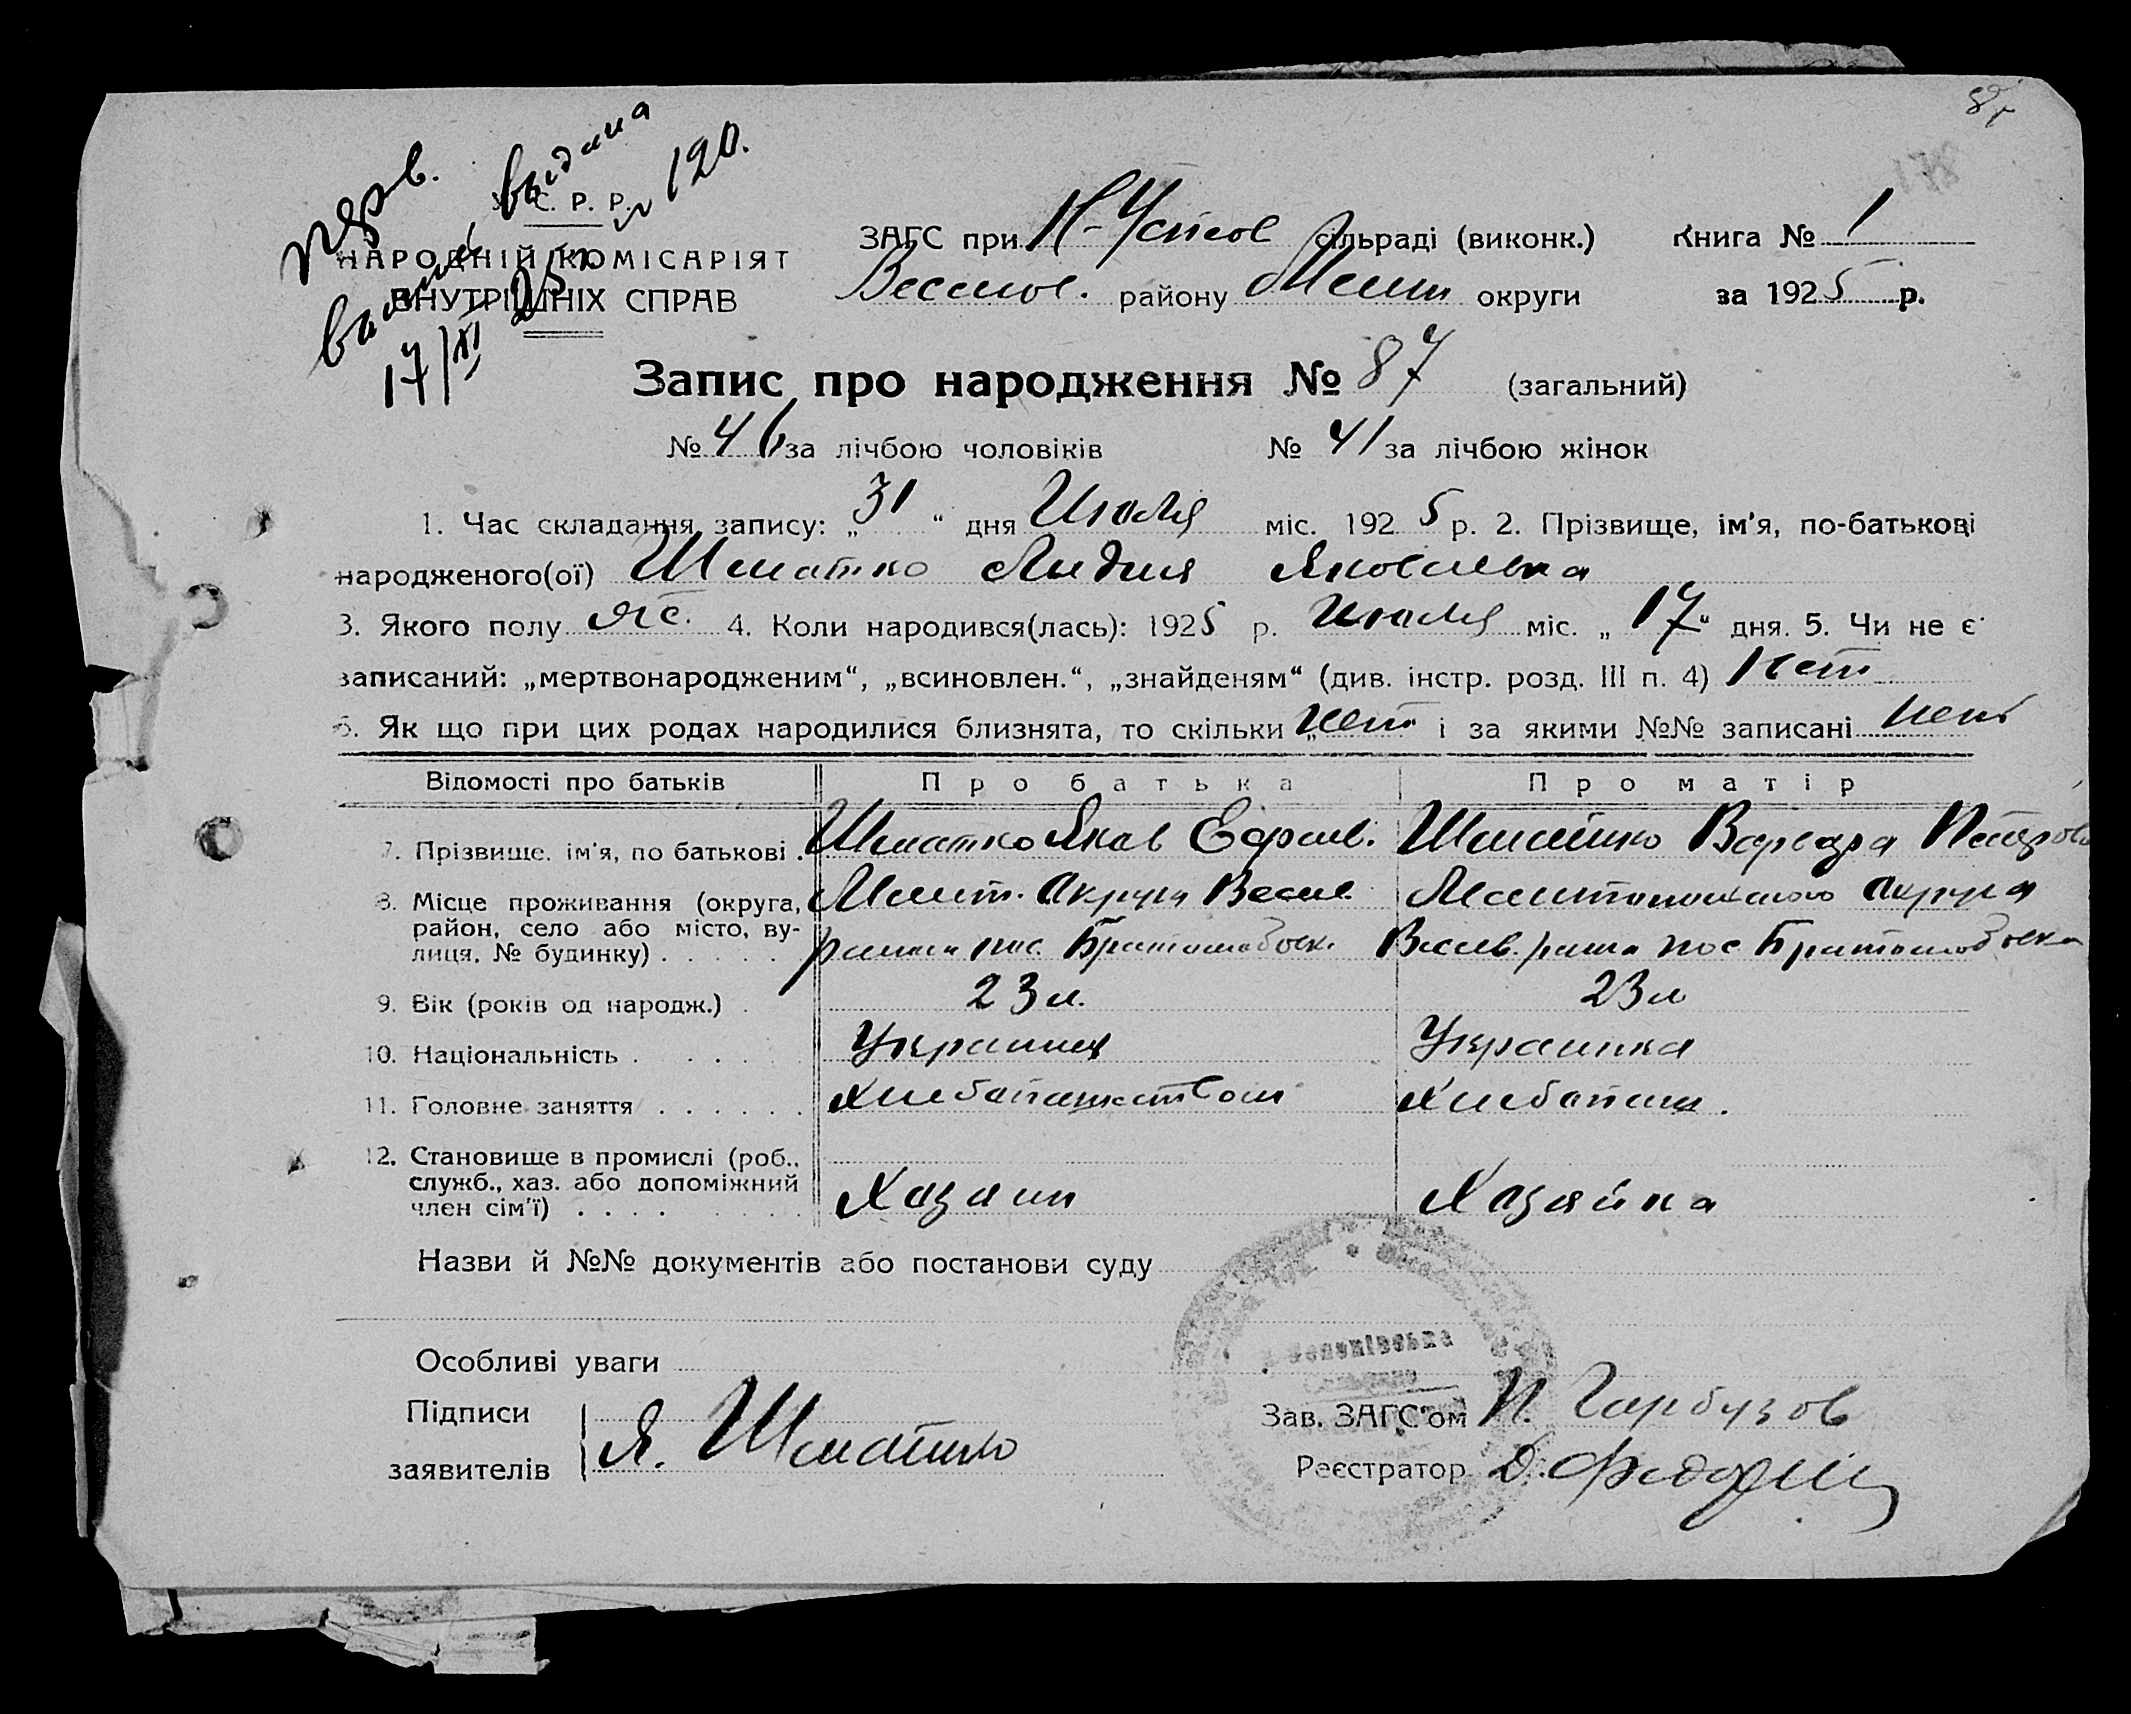 87
перв. выдана
17/XI 25 г. № 120.
У. С. Р. Р.
НАРОДНІЙ КОМІСАРІЯТ
ВНУТРІШНІХ СПРАВ
ЗАГС при Н-Успсов сільраді (виконк.) Книга № 1
Весел. району Мелит округи за 1925 р.
Запис про народження № 87 (загальний)
№ 46 за лічбою чоловіків № 41 за лічбою жінок
1. Час складання запису: „31“ дня Июля міс. 1925 р. 2. Прізвище, ім'я, по-батькові
народженого(ої) Шматко Лидия Яковлевна
3. Якого полу ж. 4. Коли народився(лась): 1925 р. Июля міс. „17“ дня. 5. Чи не є
записаний: „мертвонародженим“, „всиновлен.“, „знайденям“ (див. інстр. розд. III п. 4) Нет
6. Як що при цих родах народилися близнята, то скільки „нет і за якими №№ записані нет
Відомості про батьків Про батька Про матір
7. Прізвище, ім'я, по батькові . Шматко Яков Ефрем. Шматко Варвара Петров
8. Місце проживання (округа, Мелит. Округи Весел. Мелитопольского округа
район, село або місто, ву-
лиця, № будинку) . . . . . района пос. Братолюбовк. Весел. района пос Братолюбовка
9. Вік (років од народж.) . 23 л. 23 л
10. Національність . . . . Украинец Украинка
11. Головне заняття . . . . . . Хлебопашеством Хлебопаш.
12. Становище в промислі (роб.,
служб., хаз. або допоміжний
член сім'ї) . . . . Хазяин Хазяйка
Назви й №№ документів або постанови суду
Особливі уваги
Підписи
заявителів Я. Шматко
Зав. ЗАГС'ом И. Гарбузов
Реєстратор Д.